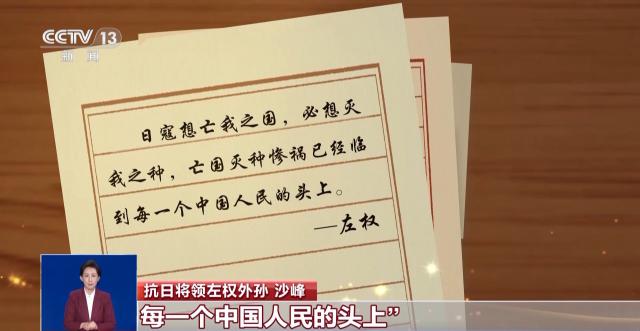 CCTV 13
新闻
日寇想亡我之国，必想灭
我之种，亡国灭种惨祸已经临
到每一个中国人民的头上。
—左权
抗日将领左权外孙 沙峰
每一个中国人民的头上”